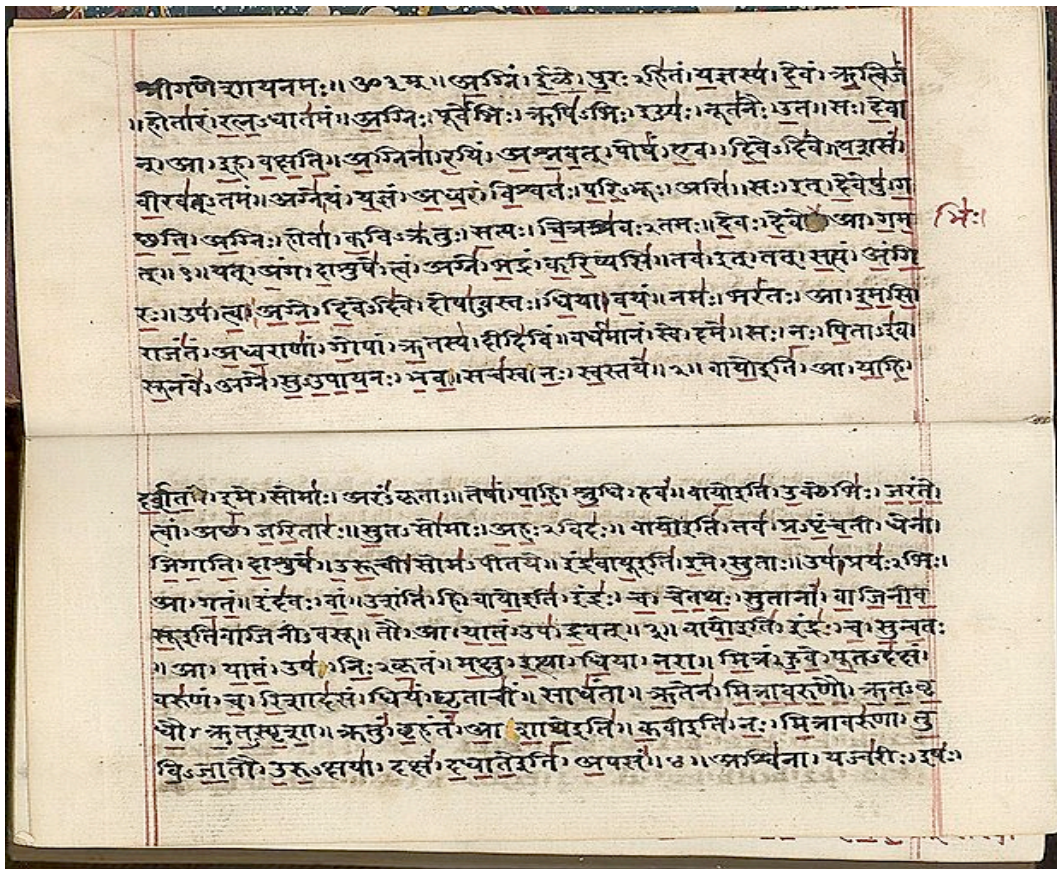 श्रीगणेशायनमः॥ॐ३म्॥अग्निं।ईळे।पुरःऽहितं।यज्ञस्य।देवं।ऋत्विजं
॥होतारं।रत्नऽधातमं॥अग्निः।पूर्वेभिः।ऋषिऽभिः।ईड्यः।नूतनैः।उत॥सः।देवा
न्।आ।इह।वक्षति॥अग्निना।रयिं।अश्नवत्।पोषं।एव।दिवेऽदिवे॥यशसं
वीरवत्ऽतमं॥अग्ने।यं।यज्ञं।अध्वरं।विश्वतः।परिऽभूः।असि॥सः।इत्।देवेषु।ग
छति।अग्निः।होता।कविऽक्रतुः।सत्यः।चित्रश्रवःऽतमः॥देवः।देवे आ।गम
भिः।
त्॥१॥यत्।अंग।दाशुषे।त्वं।अग्ने।भद्रं।करिष्यसि॥तव।इत्।तत्।सत्यं।अंगि
रः॥उप।त्वा।अग्ने।दिवेऽदिवे।दोषाऽवस्तः।धिया।वयं॥नमः।भरंतः।आ।इमसि
राजंतं।अध्वराणां।गोपां।ऋतस्य।दीदिविं॥वर्धमानं।स्वे।दमे॥सः।नः।पिताऽइव।
सूनवे।अग्ने।सुऽउपायनः।भव॥सचस्व।नः।स्वस्तये॥२॥वायोइति।आ।याहि।
दर्शत।इमे।सोमाः।अरंऽकृताः॥तेषां।पाहि।श्रुधि।हवं॥वायोइति।उक्थेभिः।जरंते।
त्वां।अछ।जरितारः॥सुतऽसोमाः।अहःऽविदः॥वायोइति।तव।प्रऽपृंचती।धेना।
जिगाति।दाशुषे॥उरूची।सोमऽपीतये॥इंद्रवायूइति।इमे।सुताः॥उप।प्रयःऽभिः।
आ।गतं॥इंदवः।वां।उशंति।हि॥वायोइति।इंद्रः।च।चेतथः।सुतानां।वाजिनीव
सूइतिवाजिनीऽवसू॥तौ।आ।यातं।उप।द्रवत्॥३॥वायोइति।इंद्रः।च।सुन्वतः
॥आ।यातं।उप।निःऽकृतं॥मक्षु।इत्था।धिया।नरा॥मित्रं।हुवे।पूतऽदक्षं।
वरुणं।च।रिशादसं॥धियं।घृताचीं॥साधंता॥ऋतेन।मित्रावरुणौ।ऋतऽवृ
धौ।ऋतऽस्पृशा॥क्रतुं।बृहंतं।आशाथेइति॥कवीइति।नः।मित्रावरुणा।तु
विऽजातौ।उरुऽक्षया।दक्षं।दधातेइति।अपसं॥४॥अश्विना।यज्वरीः।इषः।